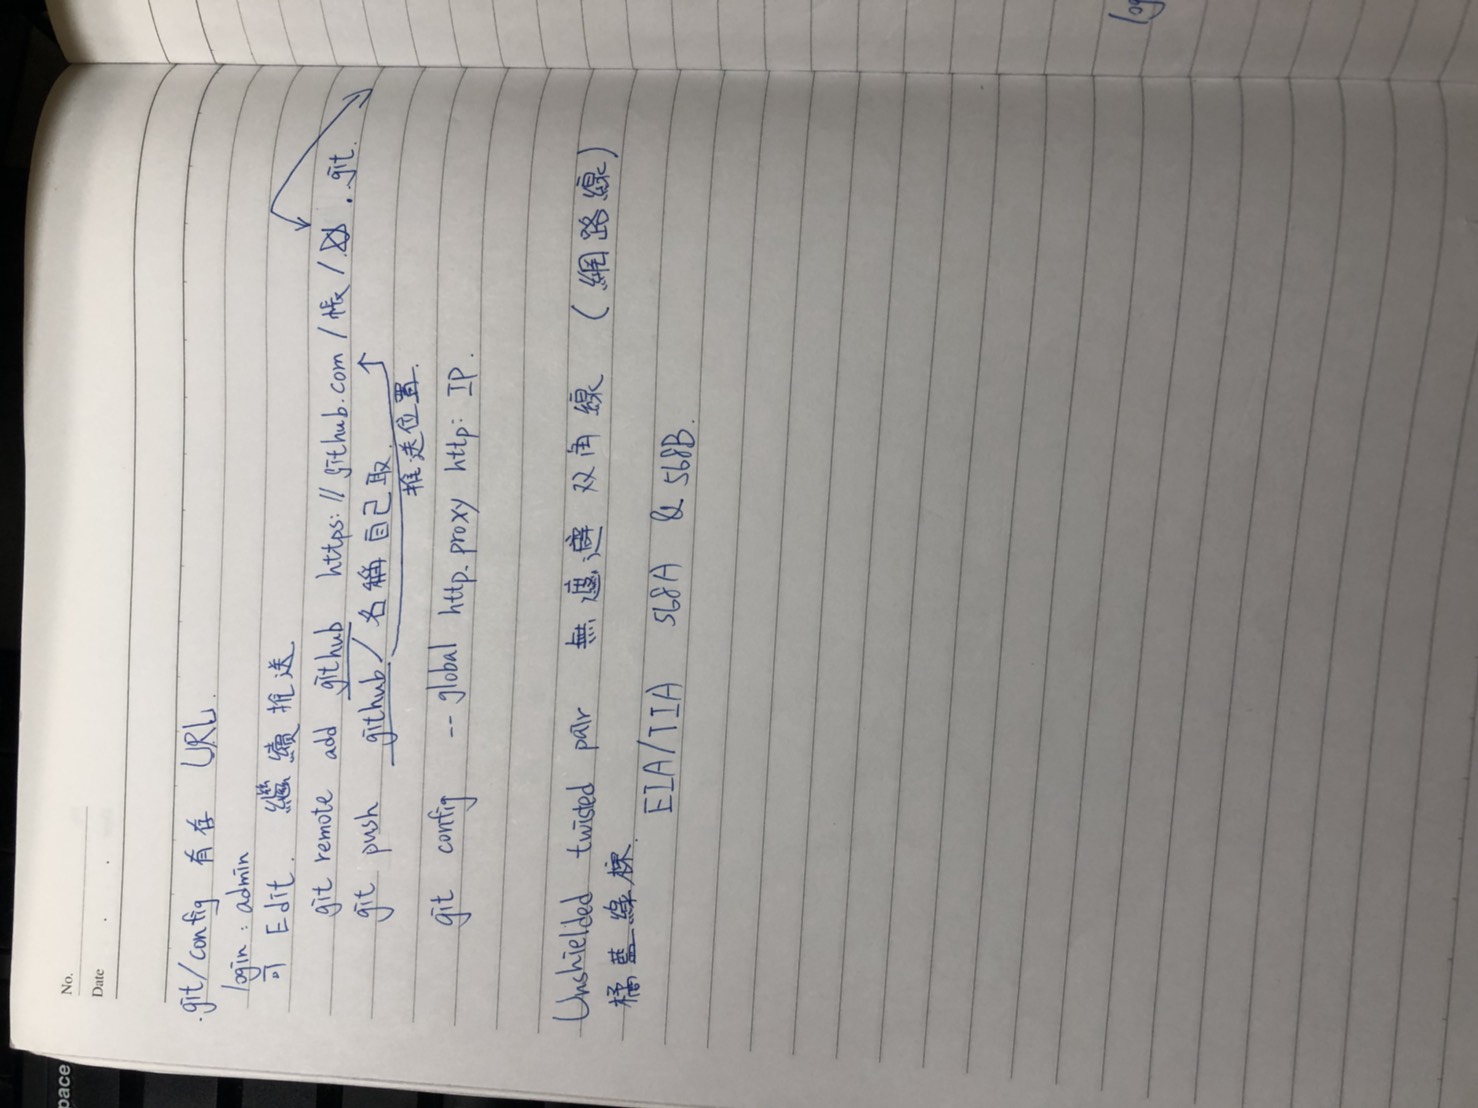 No.
Date
.git/config 有存 URL.
login : admin
可 Edit. 繼續推送
git remote add github https://github.com/帳/ . .git.
git push github/名稱自己取.
推送位置.
git config --global http.proxy http: IP.
Unshielded twisted pair 無遮 双 線 (網路線)
橘藍綠棕.
EIA/TIA 568A & 568B.
pace
log